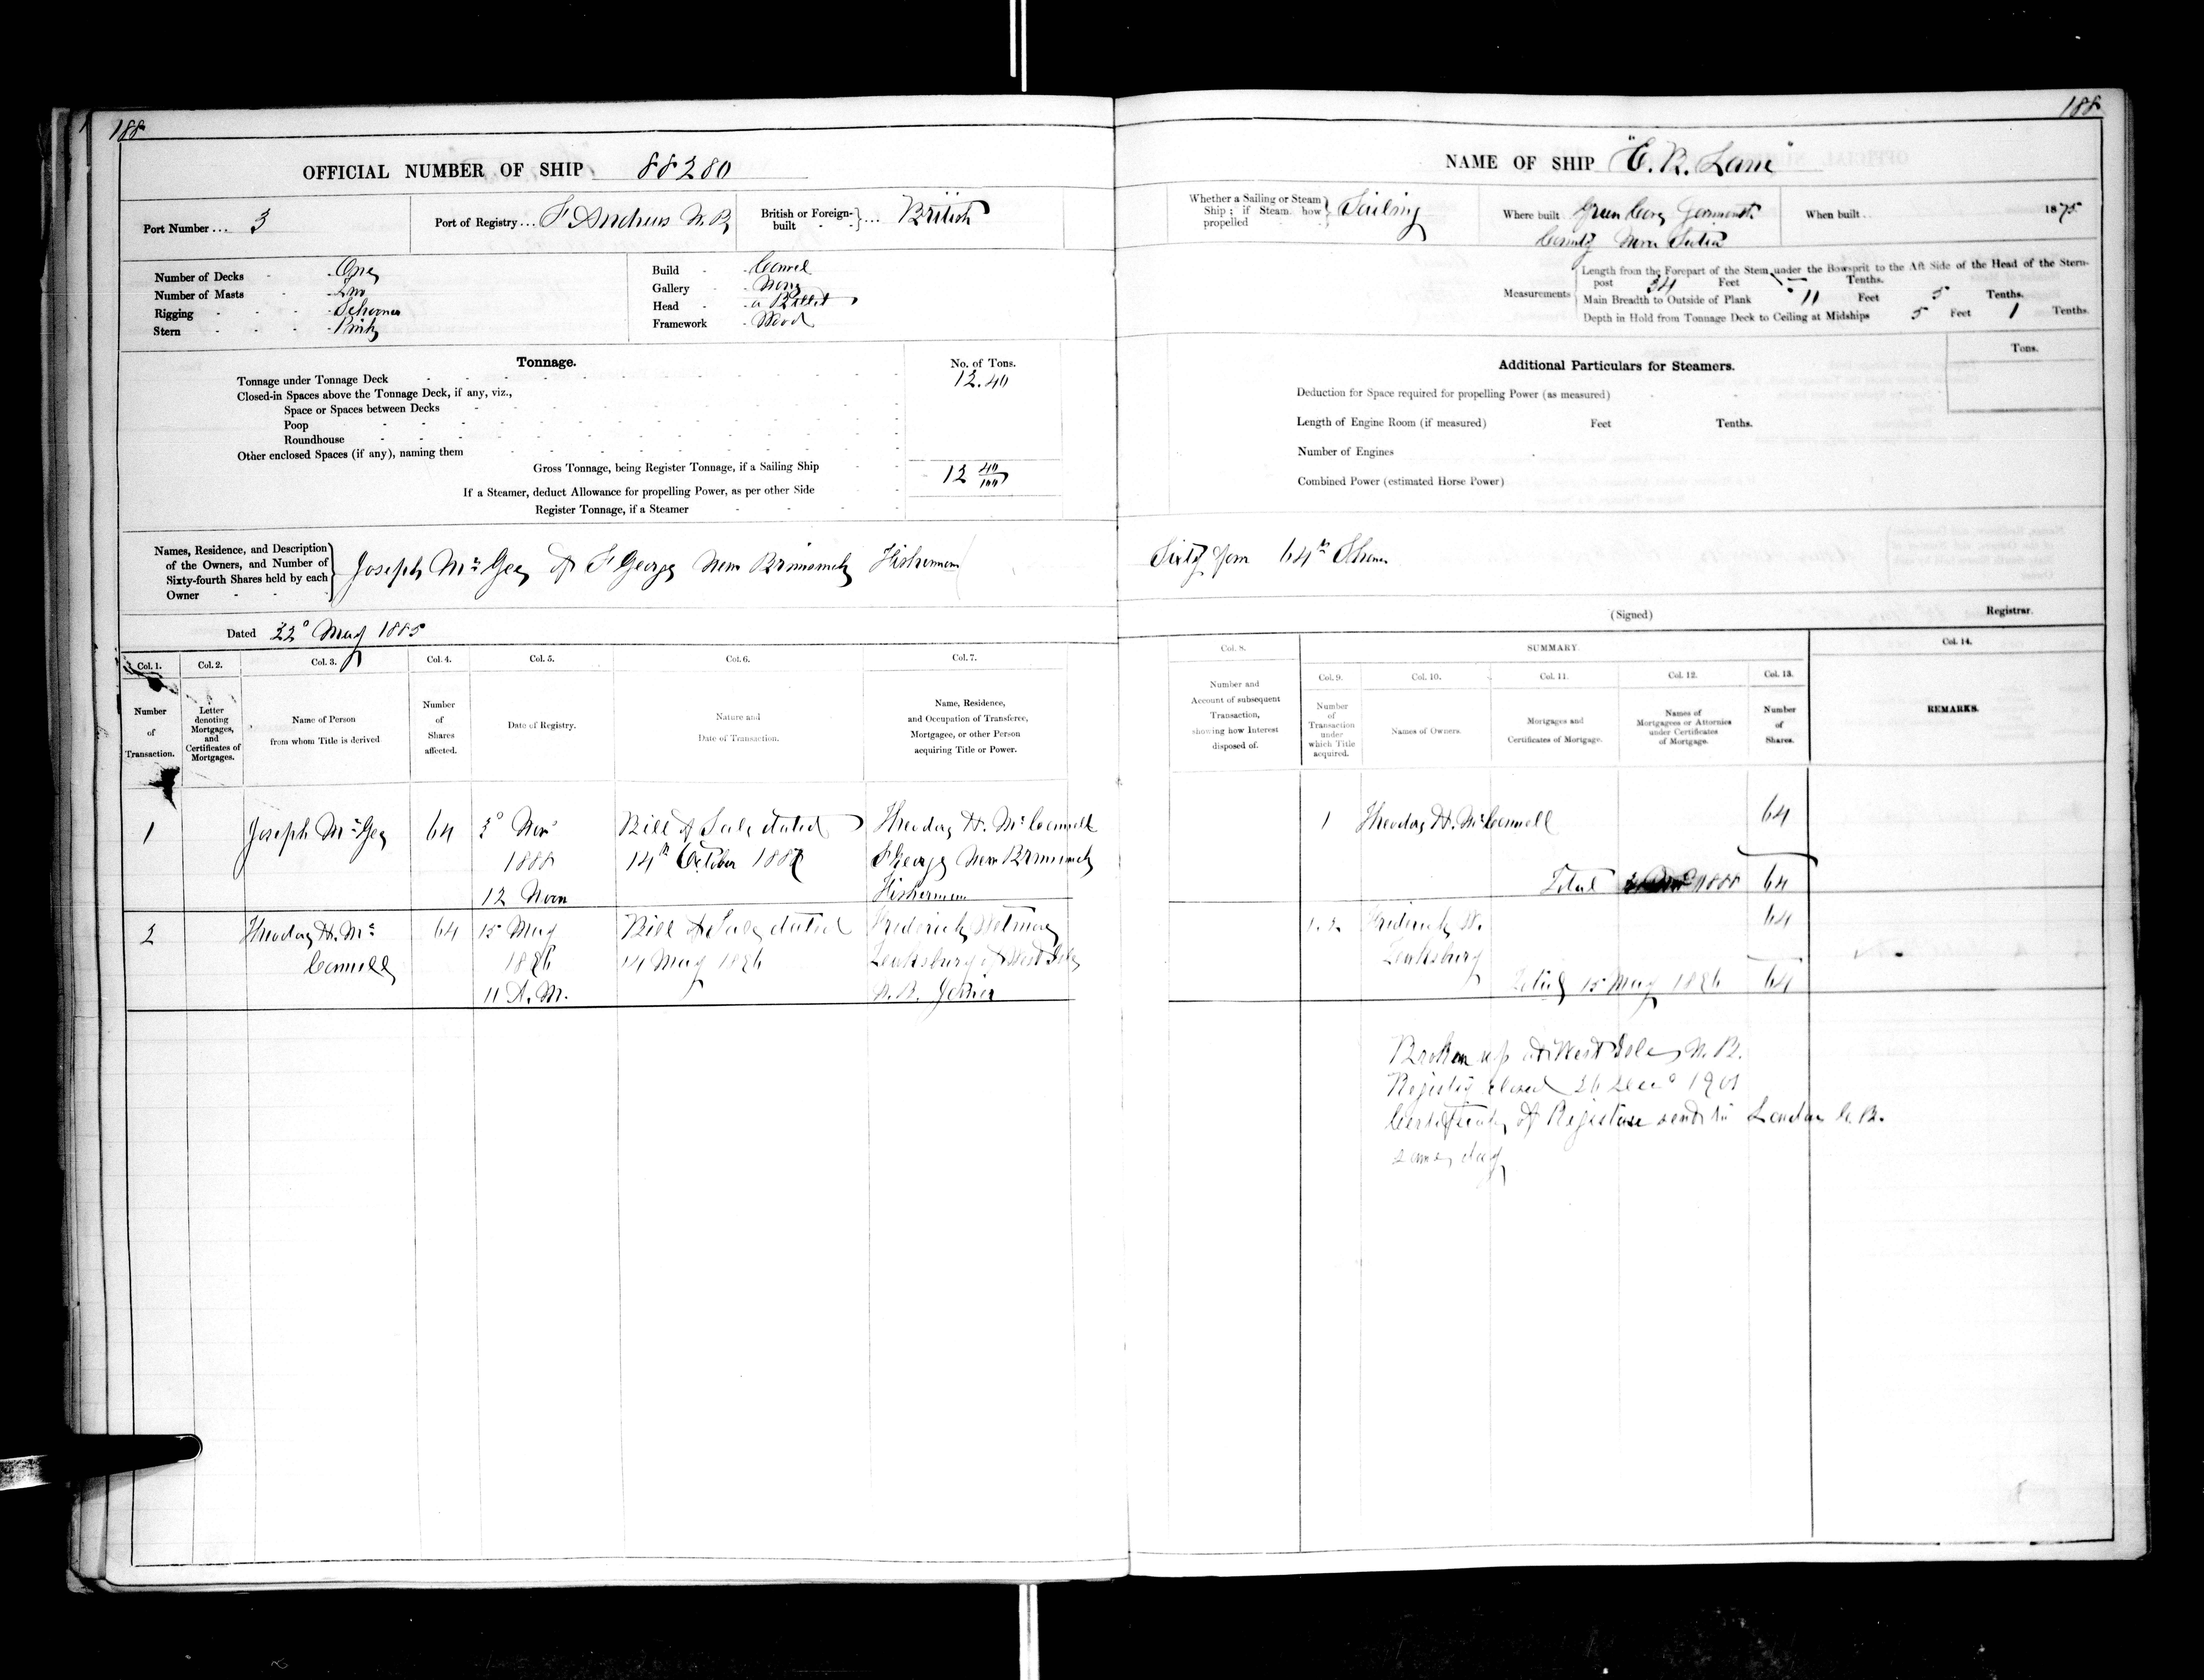 188
OFFICIAL NUMBER OF SHIP 88280
Port Number ... 3
Port of Registry ... St Andrews N. B.
British or Foreign-built } ... British
Number of Decks - One
Number of Masts - Two
Rigging - Schooner
Stern - Pink
Build - Carvel
Gallery - None
Head - a Billet
Framework - Wood
Tonnage.
No. of Tons.
Tonnage under Tonnage Deck 12.40
Closed-in Spaces above the Tonnage Deck, if any, viz.,
Space or Spaces between Decks
Poop
Roundhouse
Other enclosed Spaces (if any), naming them
Gross Tonnage, being Register Tonnage, if a Sailing Ship 12 40/100
If a Steamer, deduct Allowance for propelling Power, as per other Side
Register Tonnage, if a Steamer
Names, Residence, and Description
of the Owners, and Number of
Sixty-fourth Shares held by each
Owner
Joseph McGee of St George New Brunswick Fisherman
Dated 22d May 1885
Col. 1. Col. 2. Col. 3. Col. 4. Col. 5. Col. 6. Col. 7.
Number of Transaction.
Letter denoting Mortgages, and Certificates of Mortgages.
Name of Person from whom Title is derived
Number of Shares affected.
Date of Registry.
Nature and Date of Transaction.
Name, Residence, and Occupation of Transferee, Mortgagee, or other Person acquiring Title or Power.
1 Joseph McGee 64 Nov Bill of Sale dated H. McConnell
1888 14th October St George New Brunswick
12 Noon Fisherman
2 H. Mc 64 15 May Bill of Sale dated Frederick
Connell 1896 14 May 1896 of West Isles
11 A.M. N. B.
188
NAME OF SHIP "E. B. Lane"
Whether a Sailing or Steam Ship; if Steam how propelled } Sailing
Where built Green Cove Yarmouth
County Nova Scotia
When built .. 1875
Measurements
Length from the Forepart of the Stem under the Bowsprit to the Aft Side of the Head of the Stern-
post 34 Feet — Tenths.
Main Breadth to Outside of Plank 11 Feet 5 Tenths.
Depth in Hold from Tonnage Deck to Ceiling at Midships 5 Feet 1 Tenths.
Additional Particulars for Steamers.
Tons.
Deduction for Space required for propelling Power (as measured)
Length of Engine Room (if measured) Feet Tenths.
Number of Engines
Combined Power (estimated Horse Power)
Sixty four 64th Shares
(Signed) Registrar.
Col. 8. SUMMARY. Col. 14.
Col. 9. Col. 10. Col. 11. Col. 12. Col. 13.
Number and Account of subsequent Transaction, showing how Interest disposed of.
Number of Transaction under which Title acquired.
Names of Owners.
Mortgages and Certificates of Mortgage.
Names of Mortgagees or Attornies under Certificates of Mortgage.
Number of Shares.
REMARKS.
1 H. McConnell 64
Total 1888 64
1.2. Frederick W. 64
Total 15 May 1896 64
Broken up at West Isles N. B.
Register closed 26 Decr 1901
Certificate of Registry sent to London G. B.
same day